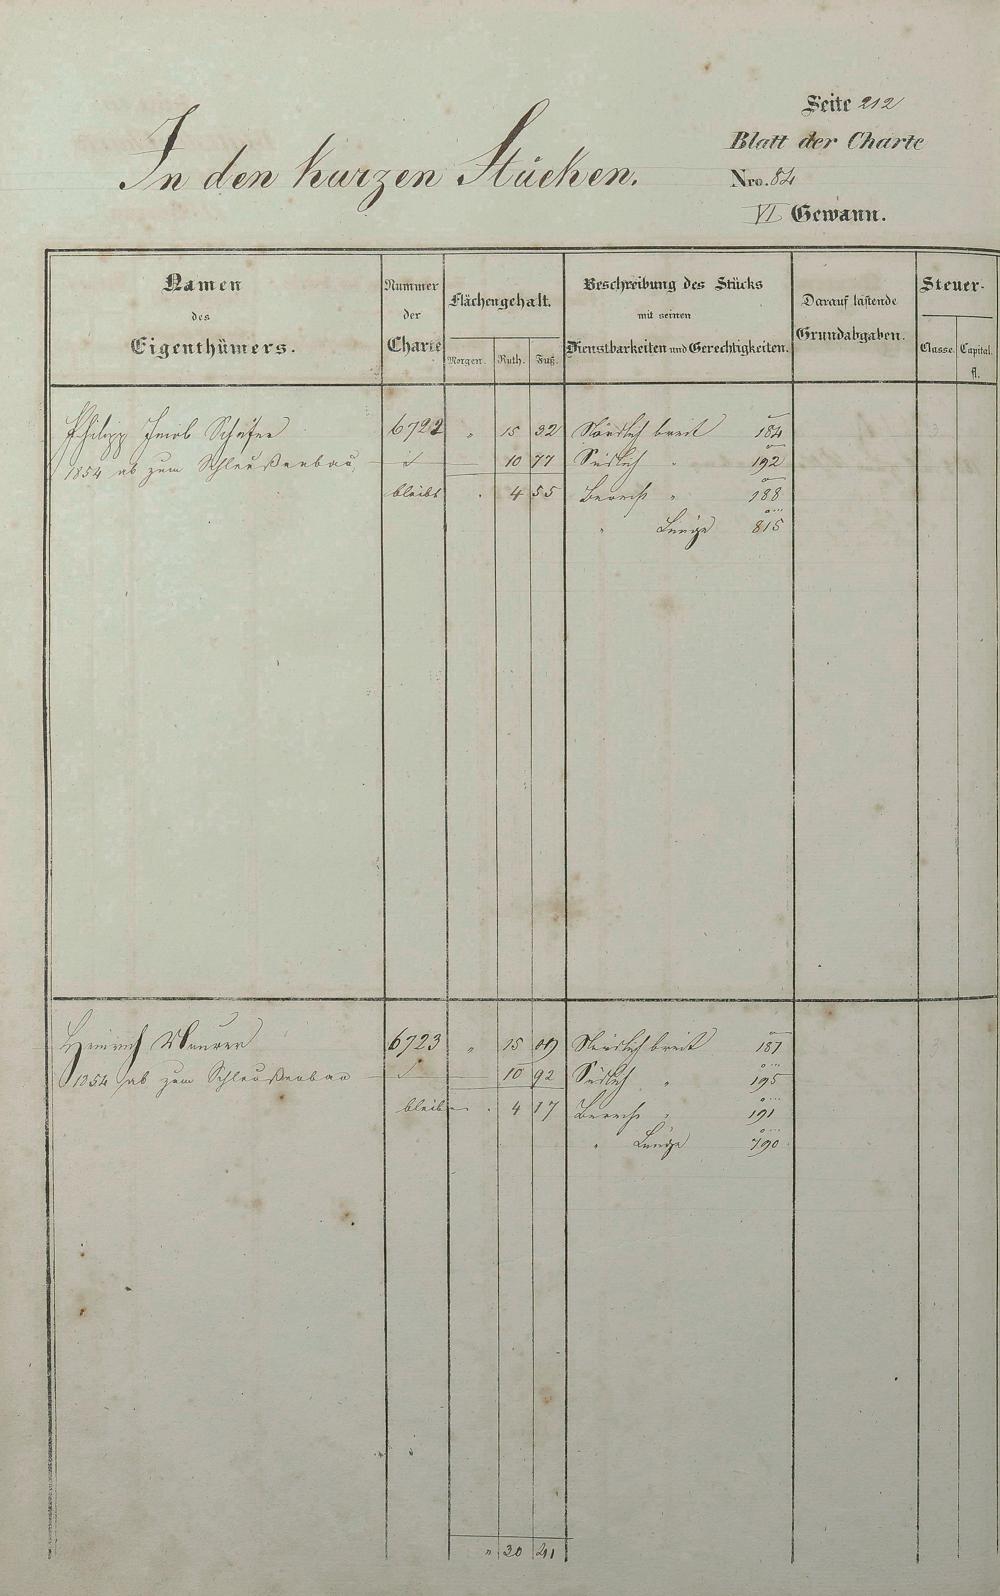 Seite 212
Blatt der Charte
In den kurzen Stücken.
Nro. 84
VI Gewann.
Namen des Eigenthümers.
Nummer der Charte
Flächengehalt.
Morgen. Ruth. Fuß.
Beschreibung des Stücks mit seinen Dienstbarkeiten und Gerechtigkeiten.
Darauf lastende Grundabgaben.
Steuer-
Classe. Capital.
fl.
Philipp Jacob Schäfer 6722 " 15 32 Nördlich breit 184
1854 ab zum Schleußenbau, 10 77 Südlich " 192
bleibt . 4 55 188
" Länge 815
Heinrich Maurer 6723 " 15 09 Nördlich breit 187
1854 ab zum Schleußenbau 10 92 Südlich " 195
bleibt . 4 17 " 191
" Länge 790
" 30 41